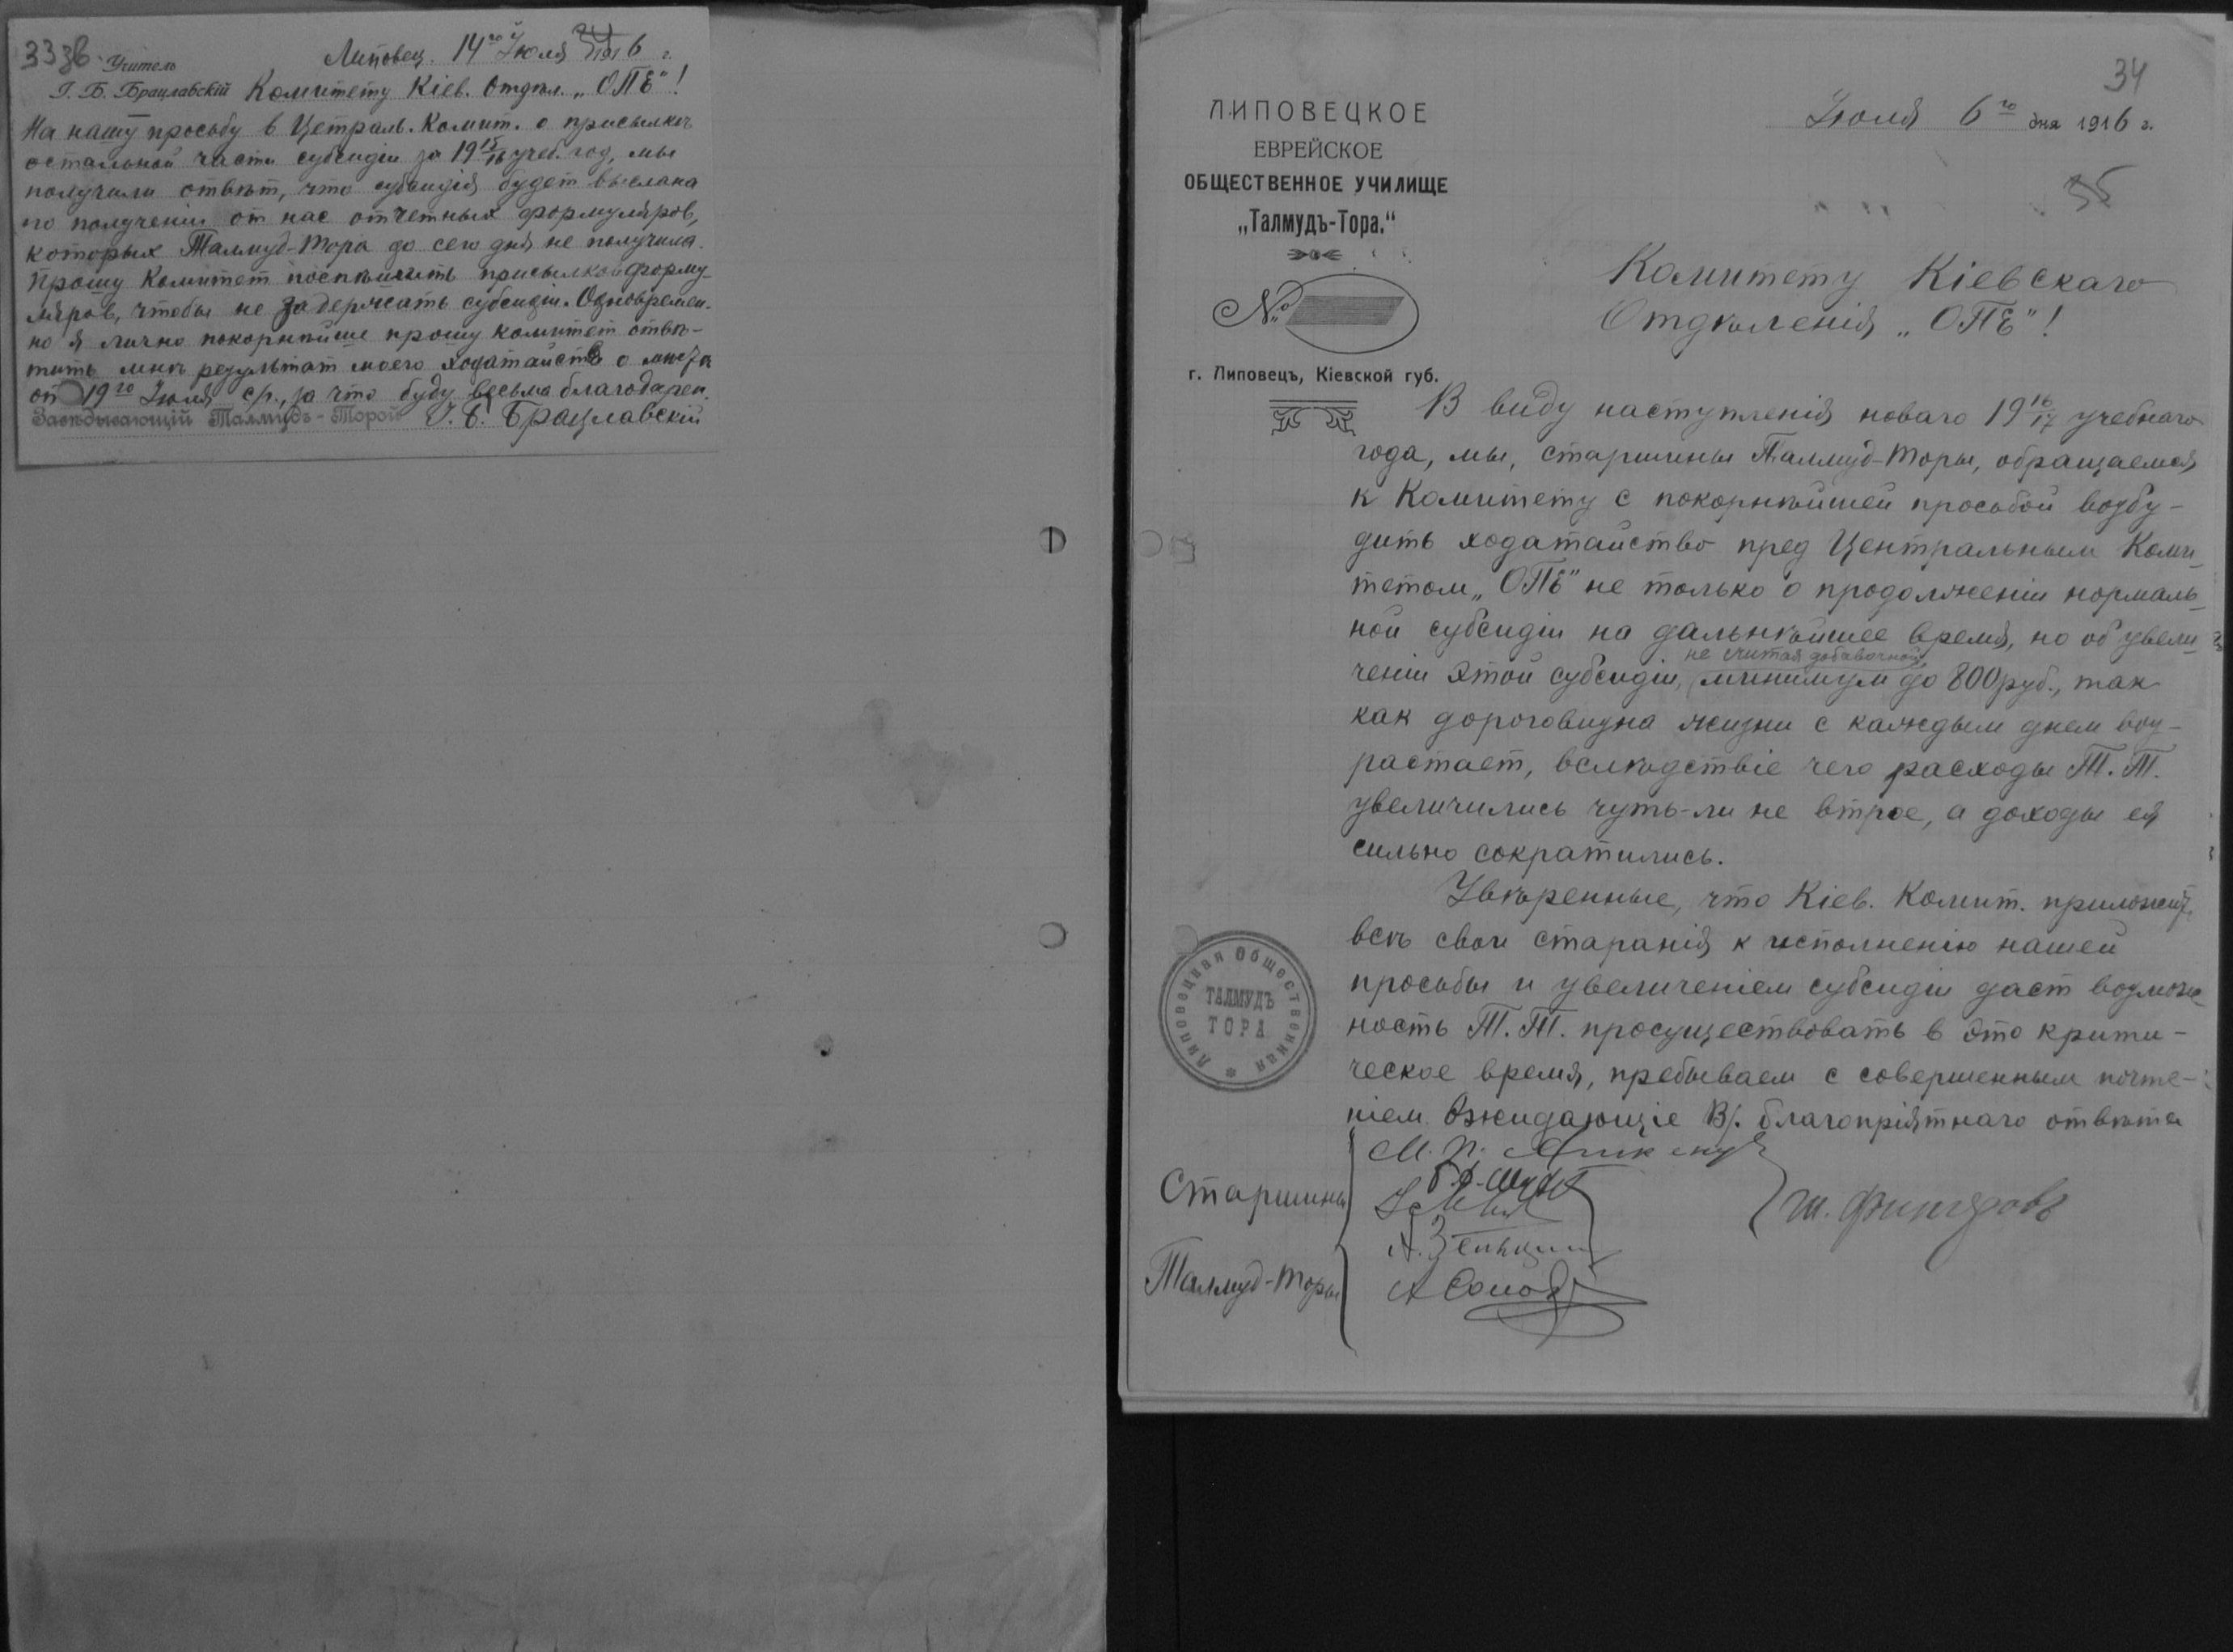 33зв.
Учитель
Липовец. 14го Июля 1916 г.
І. Б. Брацлавскій
Комитету Кіев. Отдѣл. „ОПЕ"!
На нашу просьбу в Цетраль. Комит. о присылкѣ
остальной части субсидіи за 1915/16 учеб. год, мы
получили отвѣт, что субсидія будет выслана
по полученіи от нас отчетных формуляров,
которых Талмуд-Тора до сего дня не получила.
Прошу Комитет поспѣшить присылкой форму-
ляров, чтобы не задержать субсидіи. Одновремен-
но я лично покорнѣйше прошу комитет отвѣ-
тить мнѣ результат моего ходатайства о
от 19го Июля с/г., за что буду весьма благодарен.
Завѣдывающій Талмудъ-Торой І. Б. Брацлавскій
34
ЛИПОВЕЦКОЕ
ЕВРЕЙСКОЕ
ОБЩЕСТВЕННОЕ УЧИЛИЩЕ
„Талмудъ-Тора."
№
г. Липовецъ, Кіевской губ.
Июля 6го дня 1916 г.
35
Комитету Кіевскаго
Отдѣленія „ОПЕ"!
В виду наступленія новаго 1916/17 учебнаго
года, мы, старшины Талмуд-Торы, обращаемся
к Комитету с покорнѣйшей просьбой возбу-
дить ходатайство пред Центральным Коми-
тетом „ОПЕ" не только о продолженіи нормаль-
ной субсидіи на дальнѣйшее время, но об увели-
не считая добавочной,
ченіи этой субсидіи, минимум до 800 руб., так
как дороговизна жизни с каждым днем воз-
растает, вслѣдствіе чего расходы Т. Т.
увеличились чуть-ли не втрое, а доходы ея
сильно сократились.
Увѣренные, что Кіев. Комит. приложит
всѣ свои старанія к исполненію нашей
просьбы и увеличеніем субсидіи даст возмож-
ность Т. Т. просуществовать в это крити-
ческое время, пребываем с совершенным почте-
ніем Ожидающіе В/. благопріятнаго отвѣта
Липовецкая Общественная
ТАЛМУДЪ
ТОРА
Старшины
Талмуд-Торы